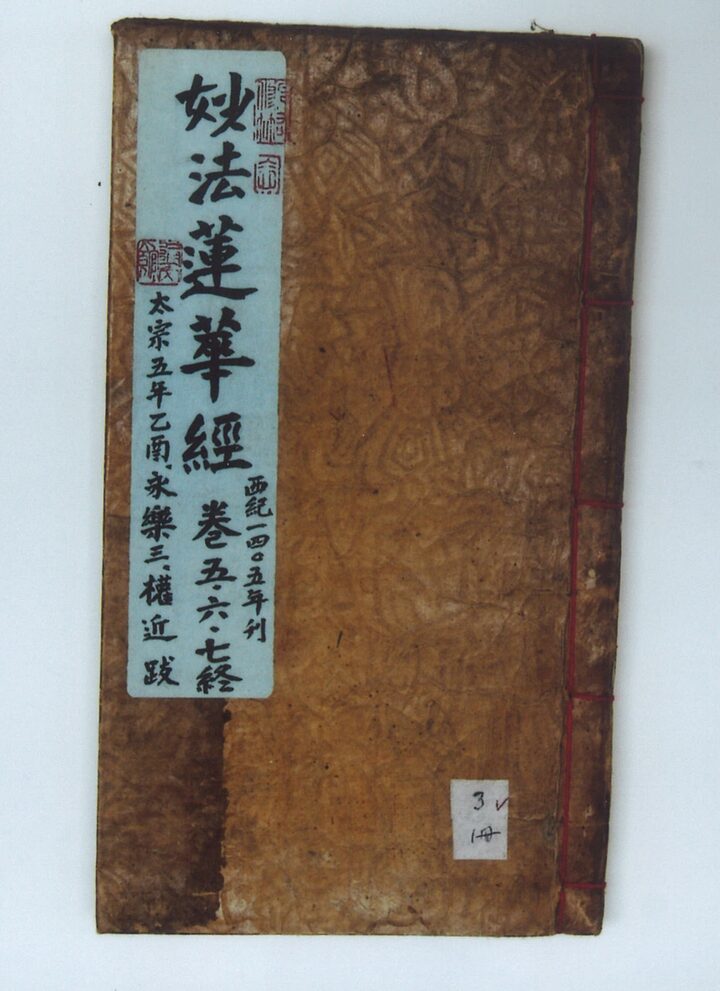 妙法蓮華經 卷五·六·七終
西紀一四〇五年刊
太宗五年乙酉、永樂三、權近跋
3✓
冊